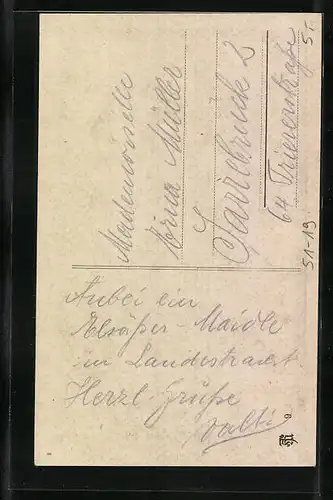 Mademoiselle
Erna Müller
Sarrebrück 2
64 Triererstraße
51-19
5.-
Anbei ein
Elsäßer-Maidle
in Landestracht
Herzl. Grüße
9